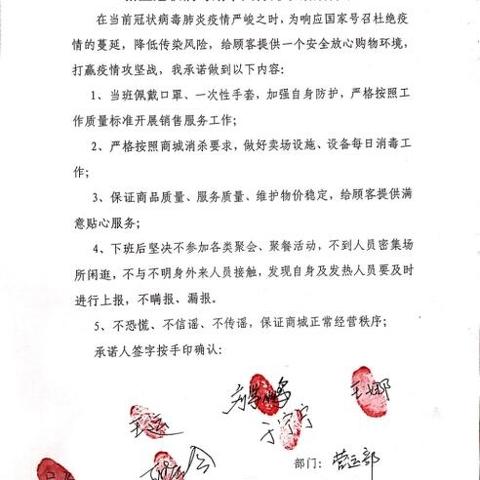 在当前冠状病毒肺炎疫情严峻之时,为响应国家号召杜绝疫
情的蔓延,降低传染风险,给顾客提供一个安全放心购物环境,
打赢疫情攻坚战,我承诺做到以下内容:
1、当班佩戴口罩、一次性手套,加强自身防护,严格按照工
作质量标准开展销售服务工作;
2、严格按照商城消杀要求,做好卖场设施、设备每日消毒工
作;
3、保证商品质量、服务质量、维护物价稳定,给顾客提供满
意贴心服务;
4、下班后坚决不参加各类聚会、聚餐活动,不到人员密集场
所闲逛,不与不明身外来人员接触,发现自身及发热人员要及时
进行上报,不瞒报、漏报。
5、不恐慌、不信谣、不传谣,保证商城正常经营秩序;
承诺人签字按手印确认:
王娜
于宁宁
王运
部门:营运部